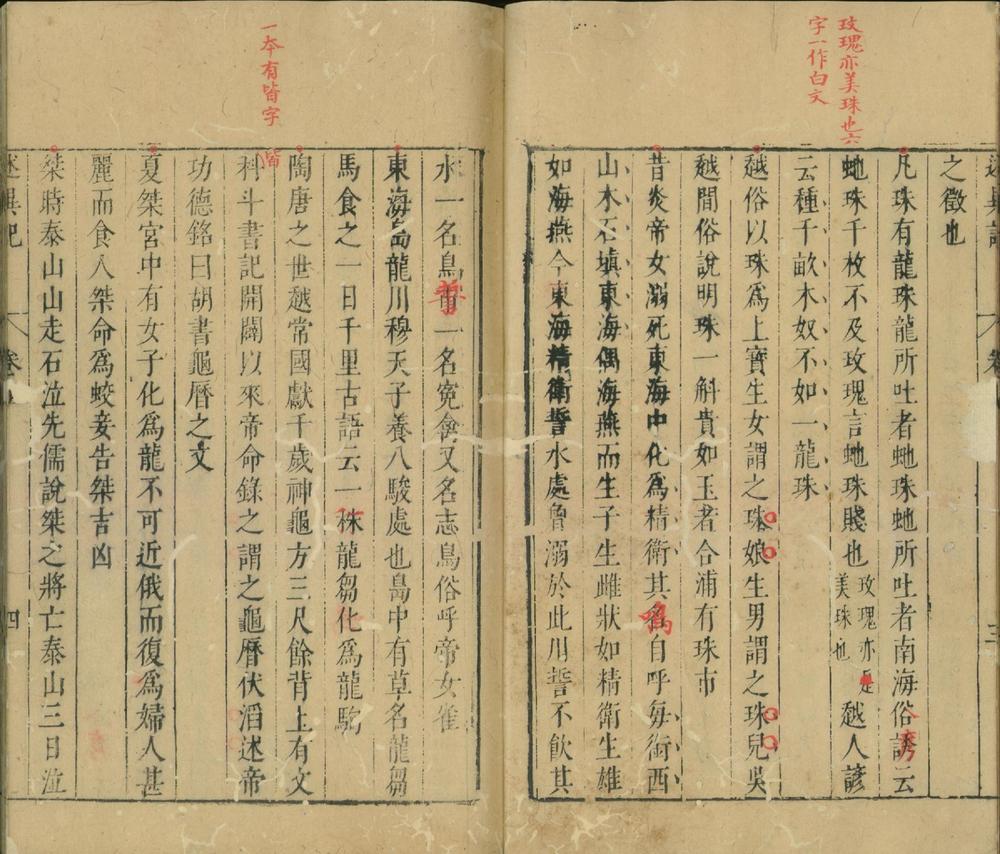 玫瑰亦美珠也六
字一作白文
之徵也
凡珠有龍珠龍所吐者虵珠虵所吐者南海俗諺云
虵珠千枚不及玫瑰言虵珠賤也玫瑰亦是美珠也越人諺
云種千畝木奴不如一龍珠
越俗以珠爲上寶生女謂之珠娘生男謂之珠兒吳
越間俗說明珠一斛貴如玉者合浦有珠市
昔炎帝女溺死東海中化爲精衛其名自呼每銜西
山木石塡東海偶海燕而生子生雌狀如精衛生雄
如海燕今東海精衛誓水處曾溺於此川誓不飮其
一本有皆字
水一名鳥誓一名冤禽又名志鳥俗呼帝女雀
東海島龍川穆天子養八駿處也島中有草名龍芻
馬食之一日千里古語云一株龍芻化爲龍駒
陶唐之世越常國獻千歲神龜方三尺餘背上有文
皆
科斗書記開闢以來帝命錄之謂之龜曆伏滔述帝
功德銘曰胡書龜曆之文
夏桀宮中有女子化爲龍不可近俄而復爲婦人甚
麗而食人桀命爲蛟妾告桀吉凶
桀時泰山山走石泣先儒說桀之將亡泰山三日泣
述異記
卷
四